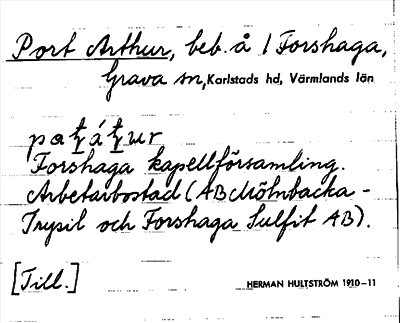 Port Arthur, beb. å 1 Forshaga,
Grava sn, Karlstads hd, Värmlands län
Forshaga kapellförsamling.
Arbetarbostad (AB Mölnbacka-
Trysil och Forshaga Sulfit AB).
[Till.]
HERMAN HULTSTRÖM 1910-11